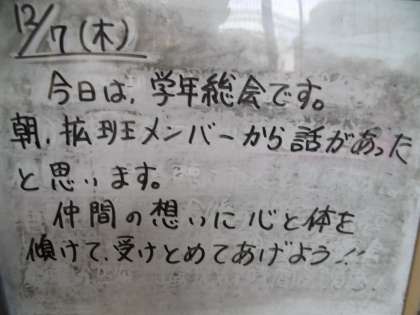 12/7(木)
今日は、学年総会です。
朝、拡班メンバーから話があった
と思います。
仲間の想いに心と体を
傾けて、受けとめてあげよう!!